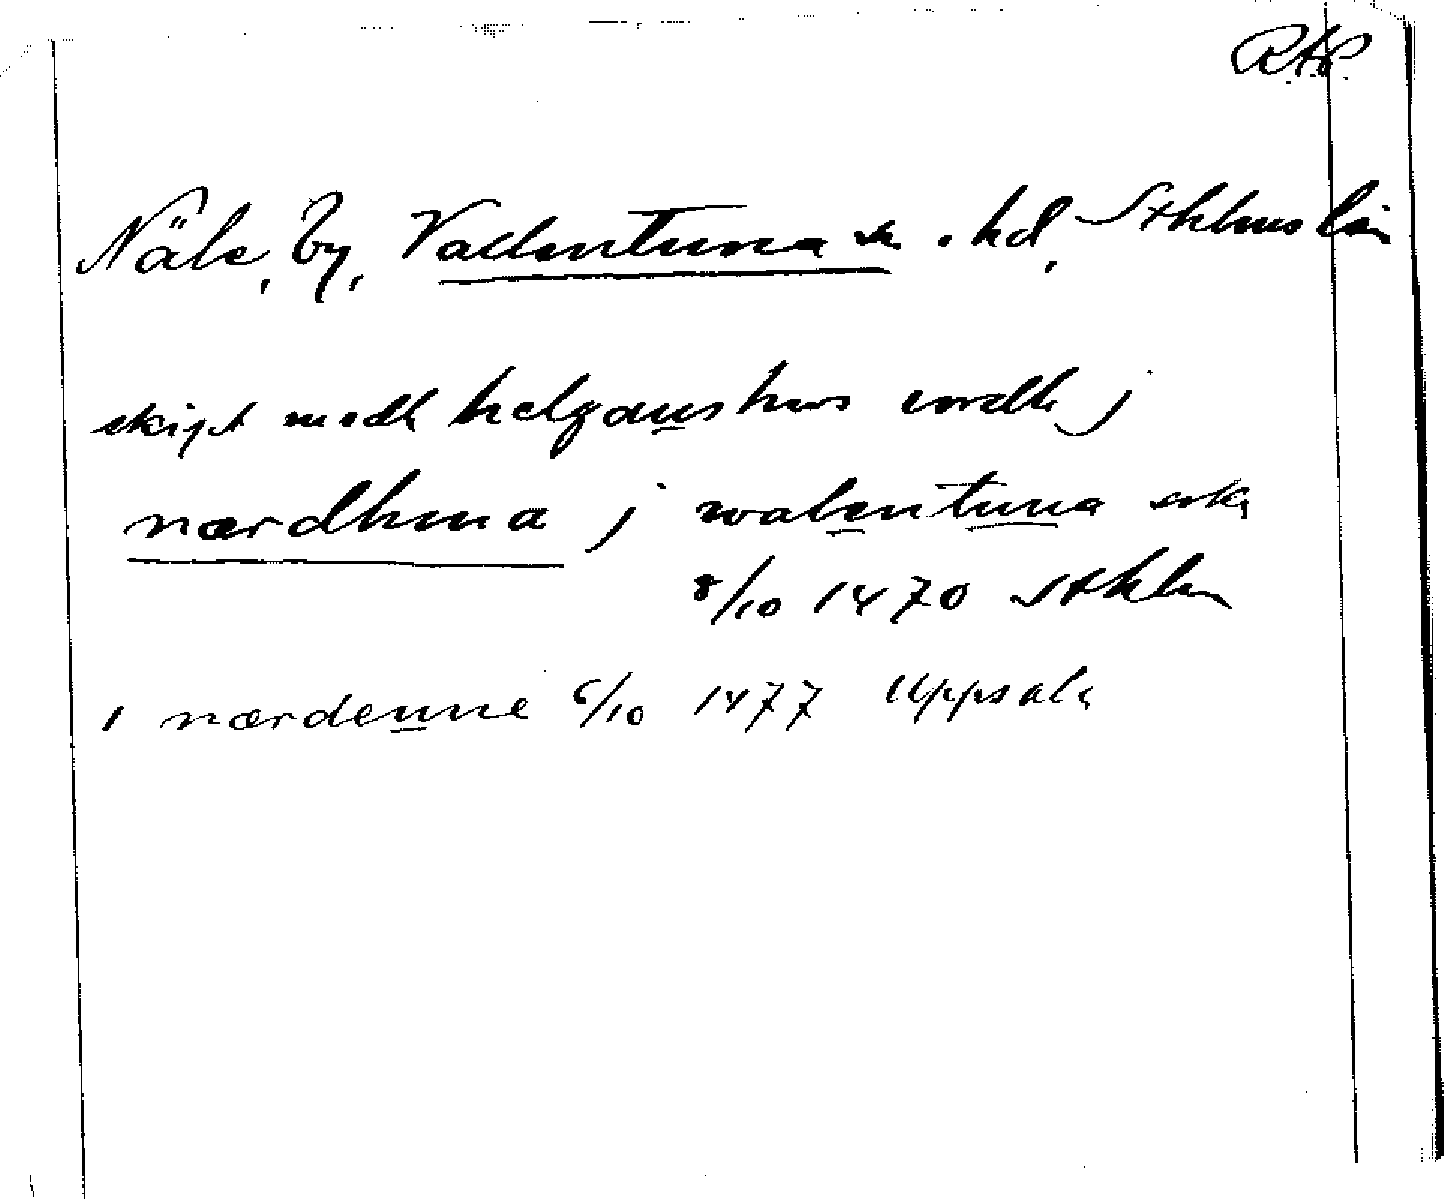 RAP.
Näle, by, Vallentuna sn. hd, Sthlms län
skipt medh helgans hws iordh j
nærdhæna j walentuna sokn
8/10 1470 Sthlm
i nærdenne 6/10 1477 Uppsala